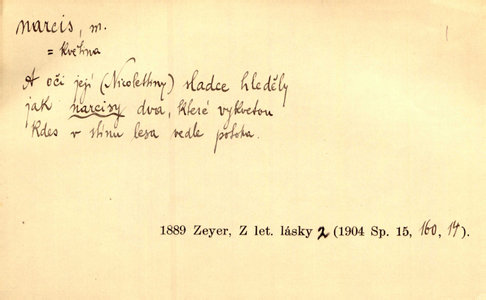 narcis, m.
= květina
A oči její (Nicolettiny) sladce hleděly
jak narcisy dva, které vykvetou
kdes v stínu lesa vedle potoka.
1889 Zeyer, Z let. lásky 2 (1904 Sp. 15, 160, 14).